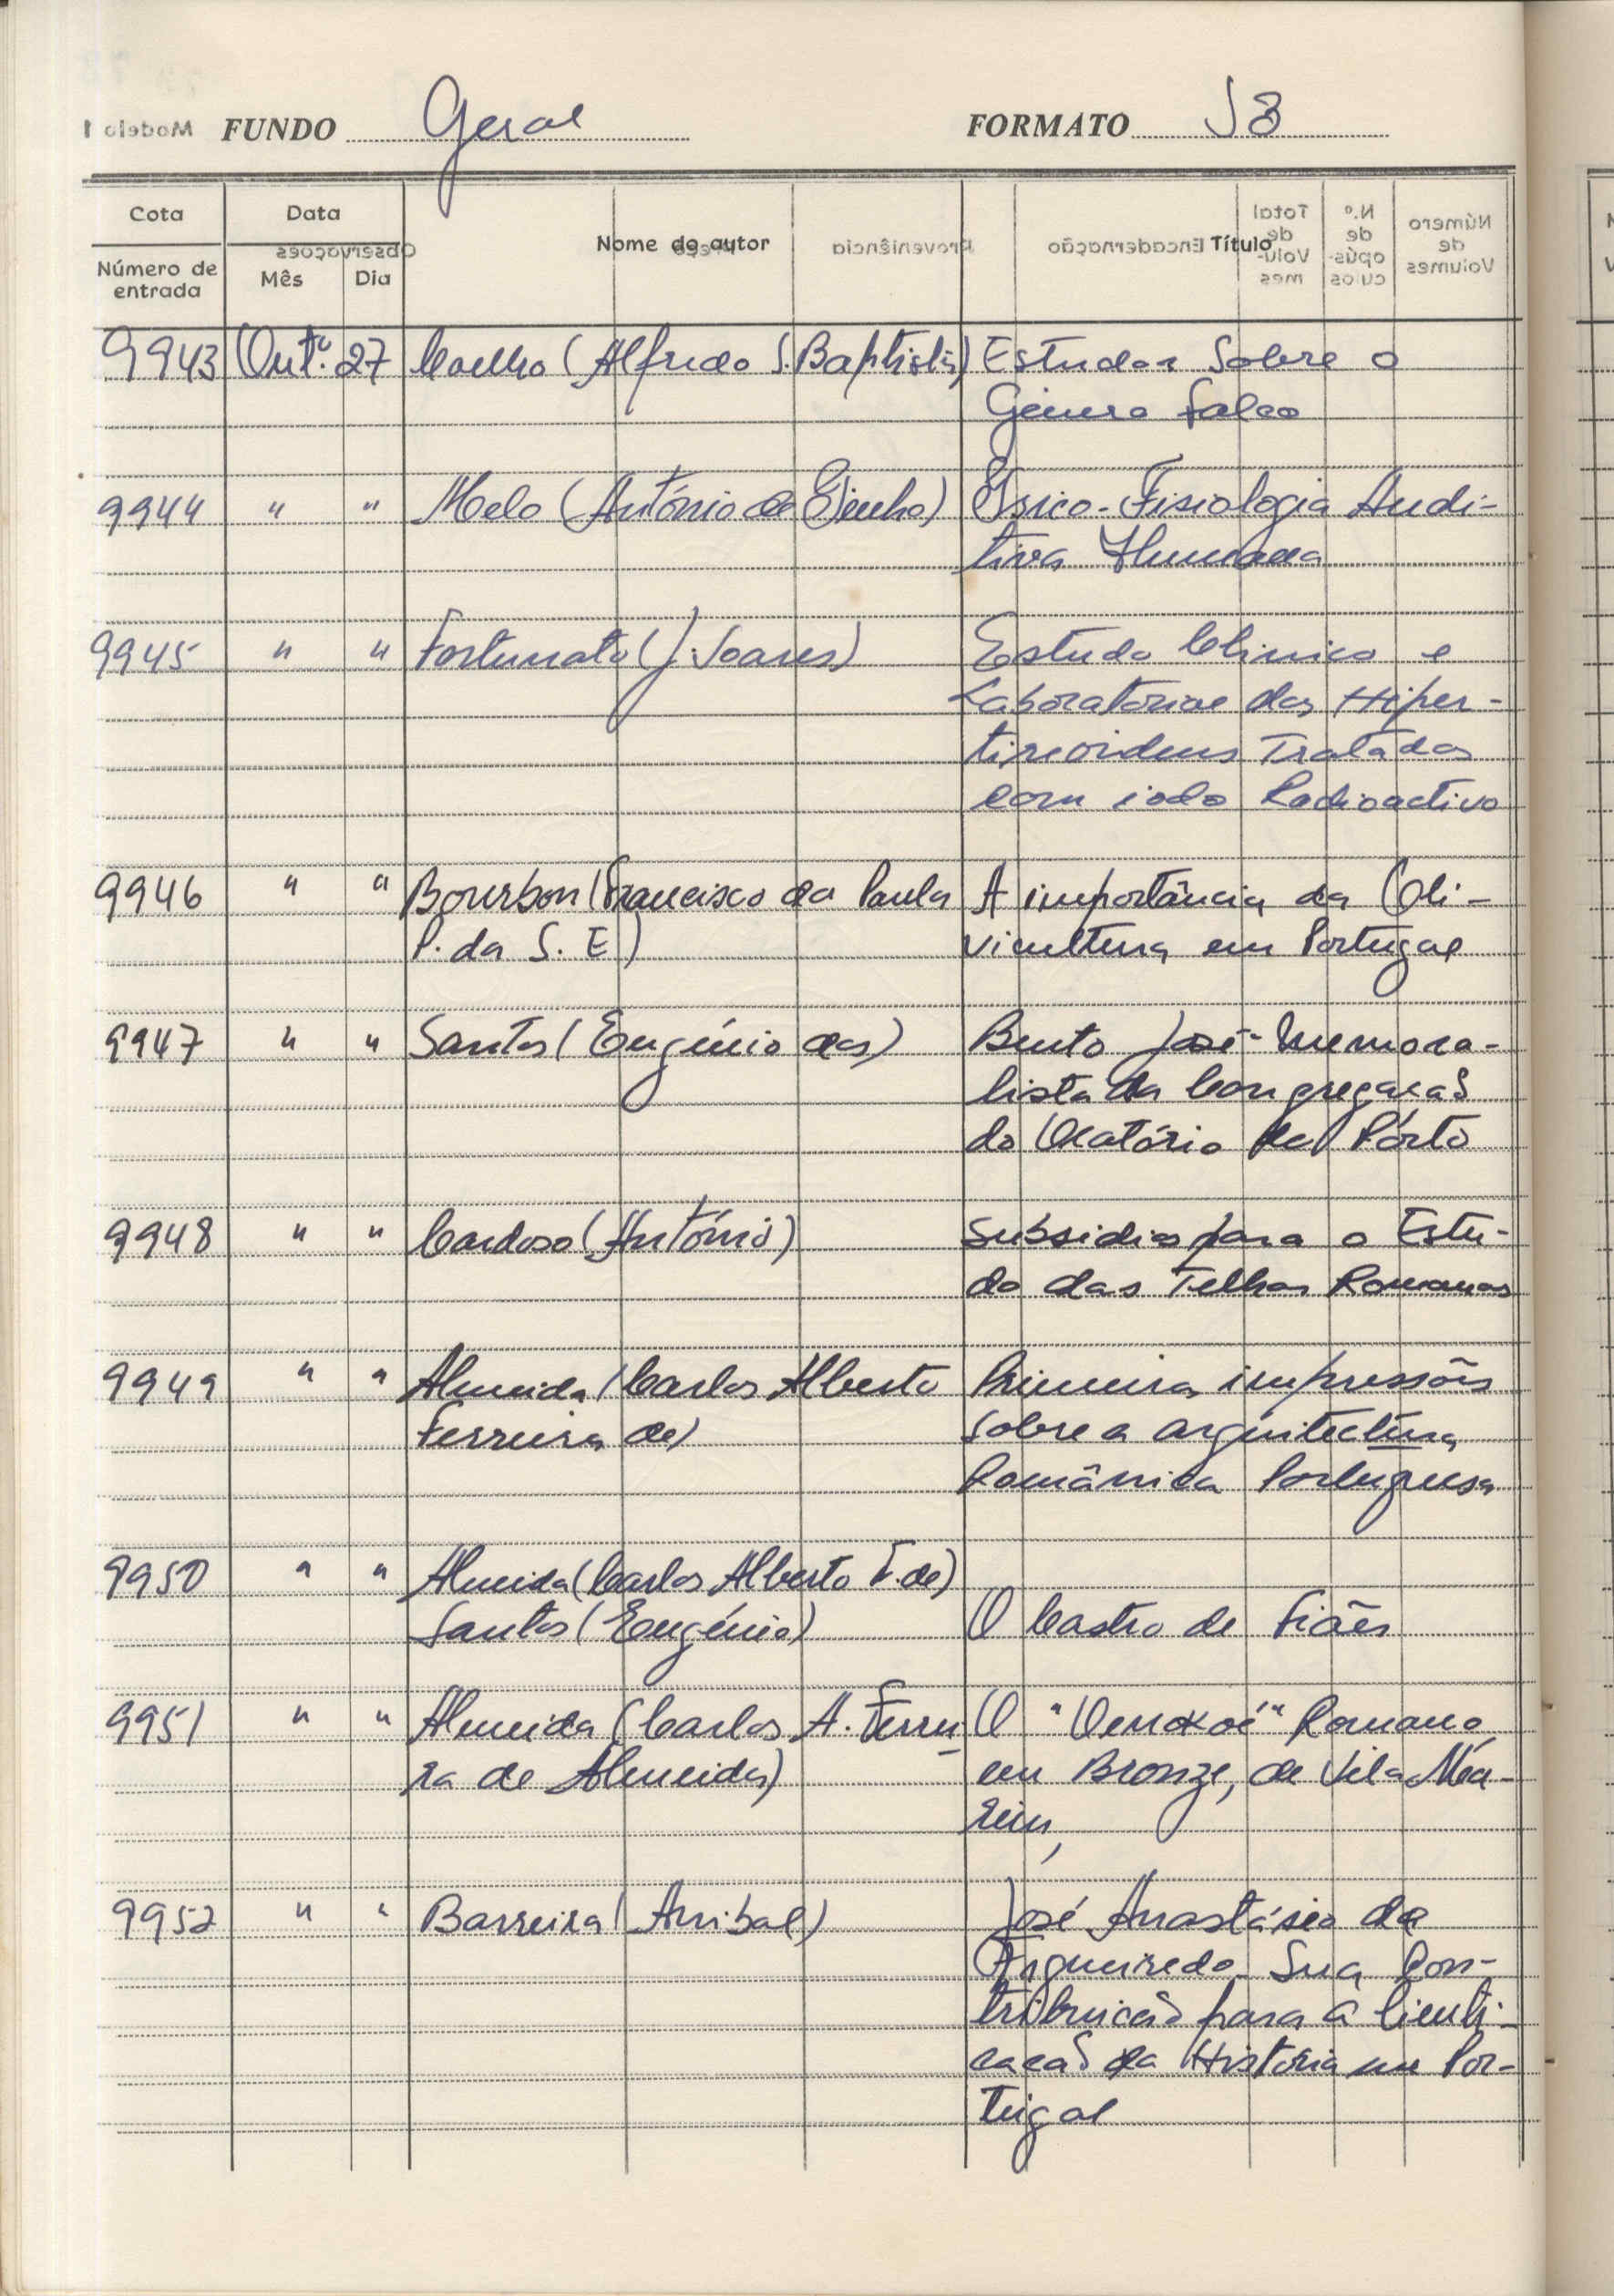 FUNDO Geral FORMATO J8
Cota Data Nome do autor Título
Número de entrada Mês Dia
9943 Outº. 27 Coelho (Alfredo S. Baptista) Estudos Sobre o
Género Falco
9944 " " Melo (António de Pinho) Psico-Fisiologia Audi-
tiva Humana
9945 " " Fortunato (J. Soares) Estudo Clinico e
Laboratorial dos Hiper-
tireoideus Tratados
com iodo Radioactivo
9946 " " Bourbon (Francisco da Paula A importância da Oli-
P. da S. E) vicultura em Portugal
9947 " " Santos (Eugénio dos) Bento José - Memora-
lista da Congregação
do Oratório do Pôrto
9948 " " Cardoso (António) Subsidios para o Estu-
do das Telhas Romanas
9949 " " Almeida (Carlos Alberto Primeiras impressões
Ferreira de) Sobre a arquitectura
Românica Portuguesa
9950 " " Almeida (Carlos Alberto F. de)
Santos (Eugénio) O Castro de Fiães
9951 " " Almeida (Carlos A. Ferrei- O " " Romano
ra de Almeida) em Bronze, de Vila Ma-
rim,
9952 " " Barreira (Anibal) José Anastásio de
Figueiredo Sua Con-
tribuição para a Cienti-
zação da História em Por-
tugal